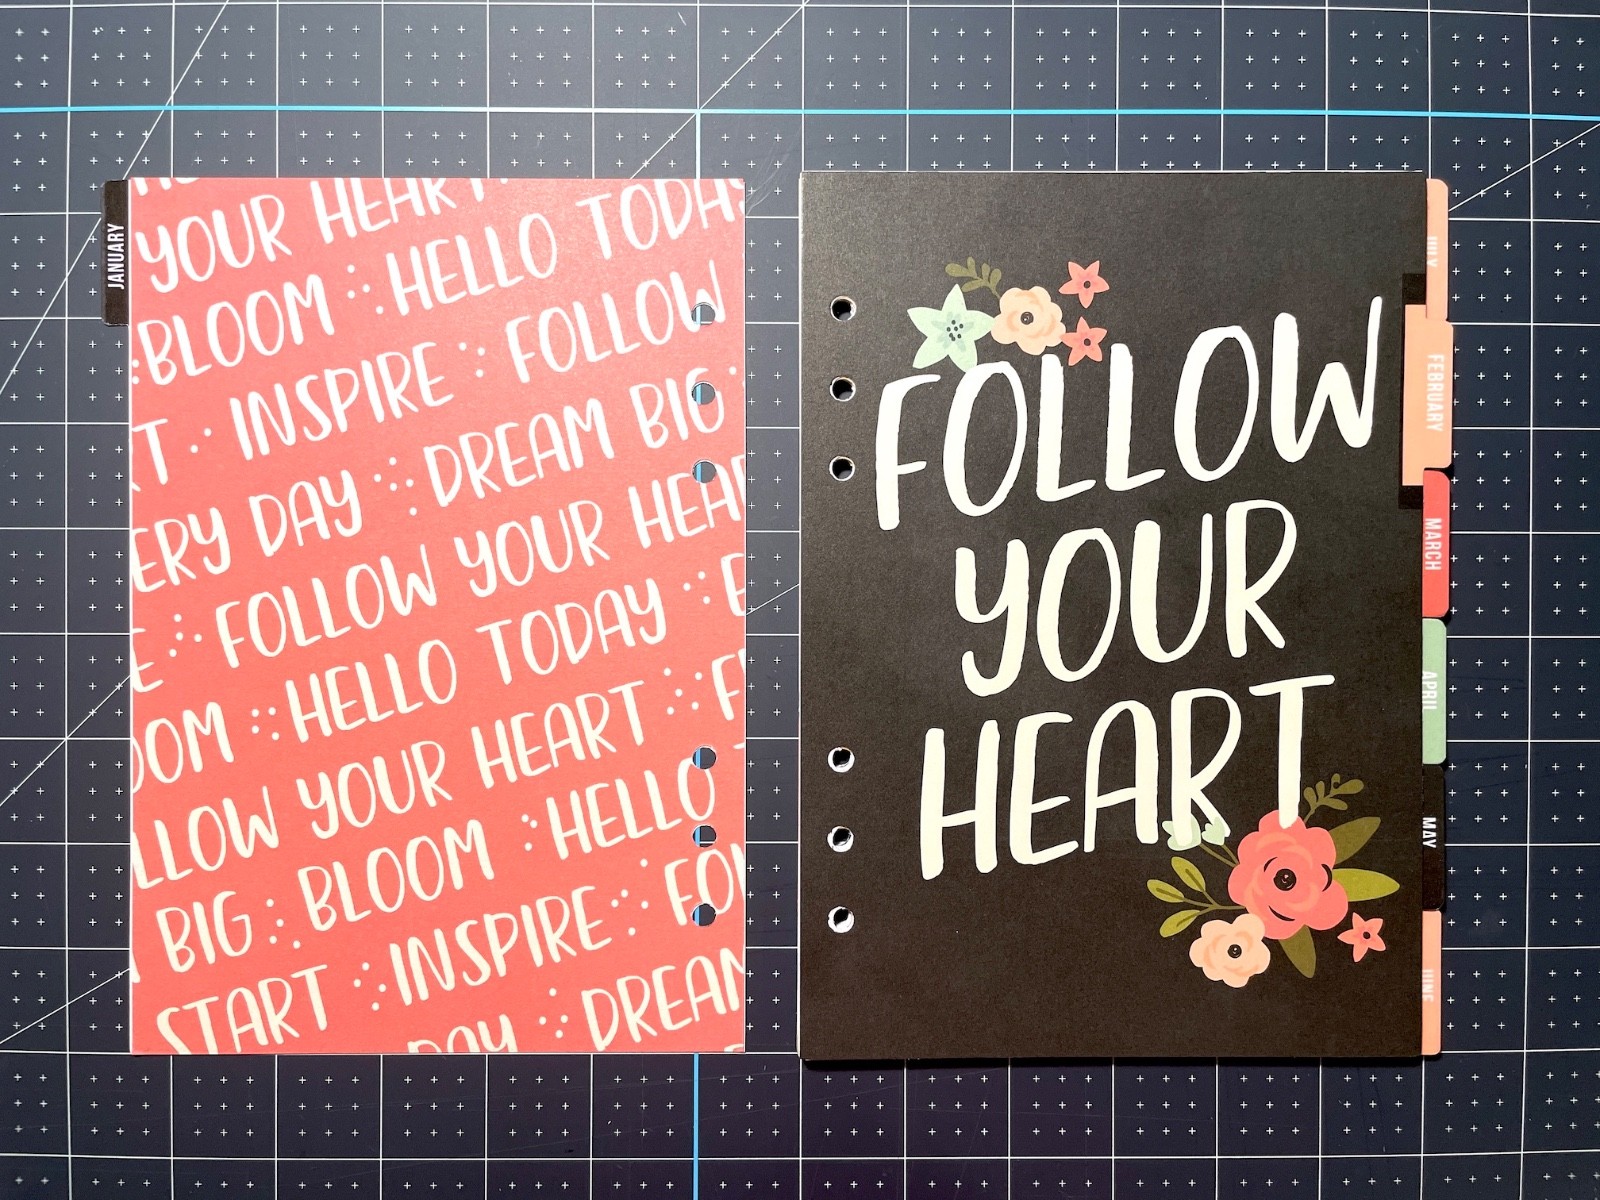 JANUARY
YOUR HEART
BLOOM HELLO TODAY
T INSPIRE FOLLOW
ERY DAY DREAM BIG
E FOLLOW YOUR HEAR
OOM HELLO TODAY E
LLOW YOUR HEART F
BIG BLOOM HELLO
START INSPIRE FOL
DAY DREAM
FOLLOW
YOUR
HEART
JULY
FEBRUARY
MARCH
APRIL
MAY
JUNE